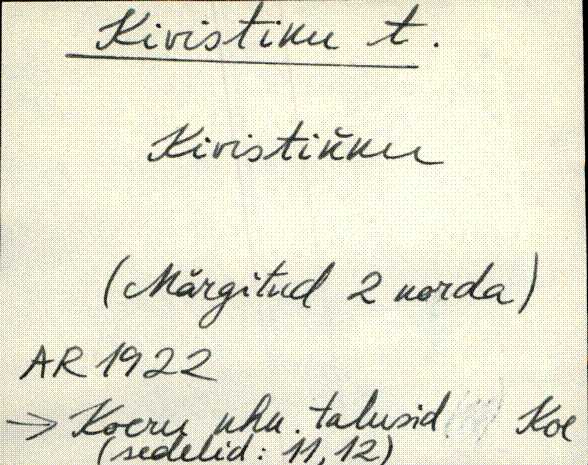 Kivistiku t.
Kivistiǩku
(Märgitud 2 korda)
AR 1922
→ Koeru khk. talusid Koe
(sedelid: 11, 12)